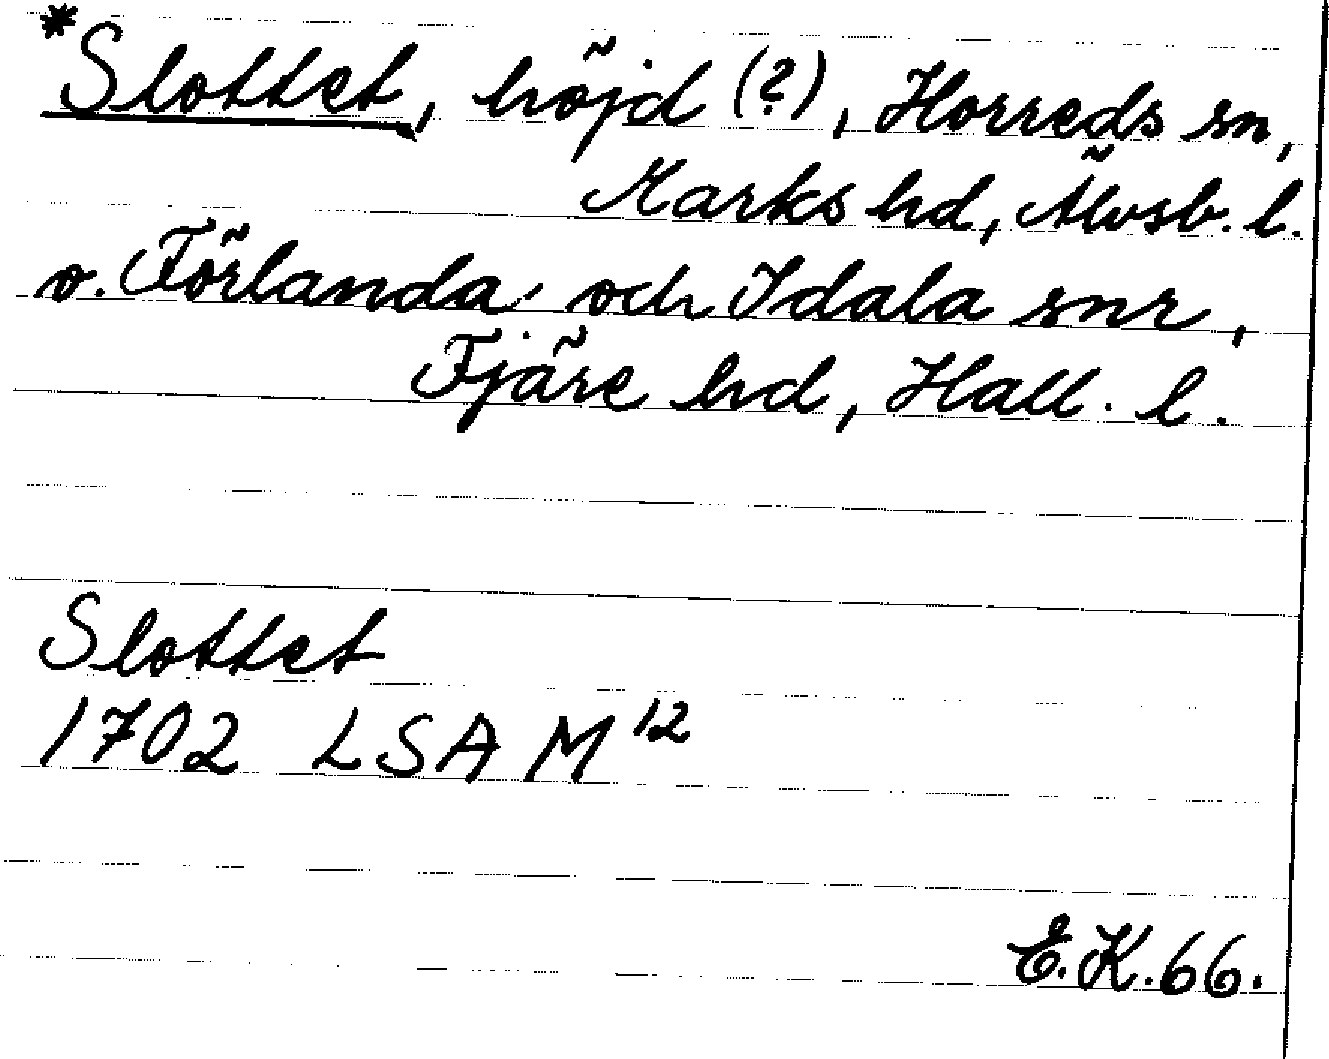 *Slottet, höjd (?), Horreds sn,
Marks hd, Älvsb. l.
o. Förlanda och Idala snr,
Fjäre hd, Hall. l.
Slottet
1702 LSA M¹²
E.K.66.